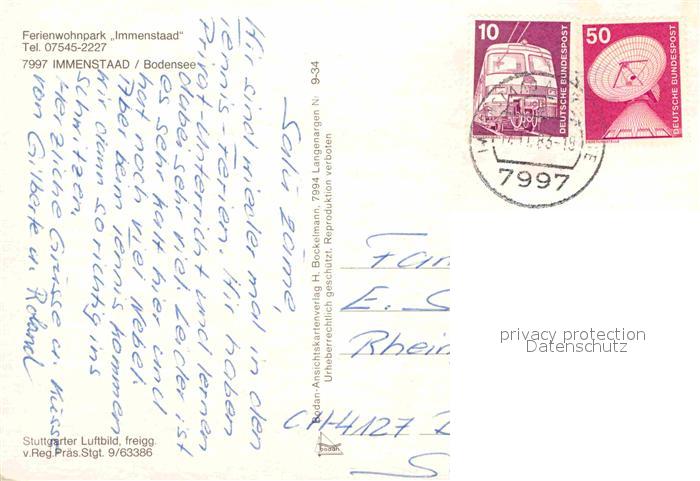 Ferienwohnpark „Immenstaad"
Tel. 07545-2227
7997 IMMENSTAAD / Bodensee
Salü zäme,
Wir sind wieder mal in den
Tennis-Ferien. Wir haben
Privat-Unterricht und lernen
dabei sehr viel. Leider ist
es sehr kalt hier und
hat noch viel Nebel.
Aber beim Tennis kommen
wir dann so richtig ins
Schwitzen.
Herzliche Grüsse u. Küsse
von Gilberte u. Roland
Stuttgarter Luftbild, freigg.
v.Reg.Präs.Stgt. 9/63386
Bodan-Ansichtskartenverlag H. Bockelmann, 7994 Langenargen Nr. 9-34
Urheberrechtlich geschützt. Reproduktion verboten
bodan
10
DEUTSCHE BUNDESPOST
50
DEUTSCHE BUNDESPOST
11.83-19
7997
Fam
E. S
Rhein
CH-4127
S
privacy protection
Datenschutz